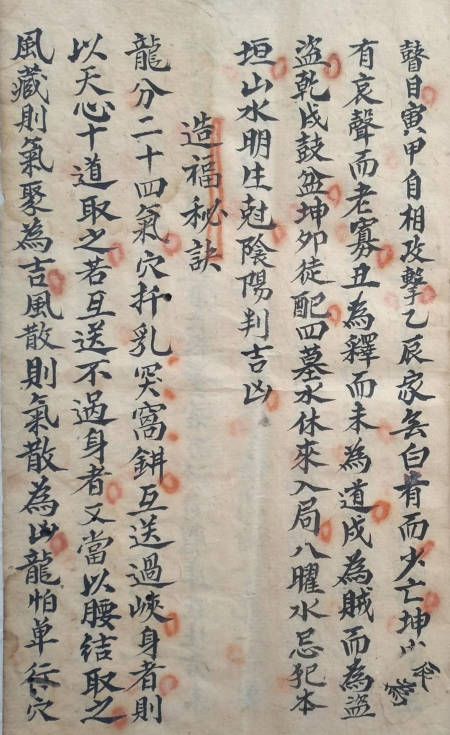 瞽目寅甲自相攻擊乙辰家無白有而少亡坤山
有哀聲而老寡丑為釋而未為道戌為賊而為盜
盜乾戌鼓盆坤卯徒配四墓水休來入局八曜水忌犯本
垣山水明生尅陰陽判吉凶
造福秘訣
龍分二十四氣穴扦乳突窩鉗互送過峽身者則
以天心十道取之若互送不過身者又當以腰結取之
風藏則氣聚為吉風散則氣散為凶龍怕單行穴